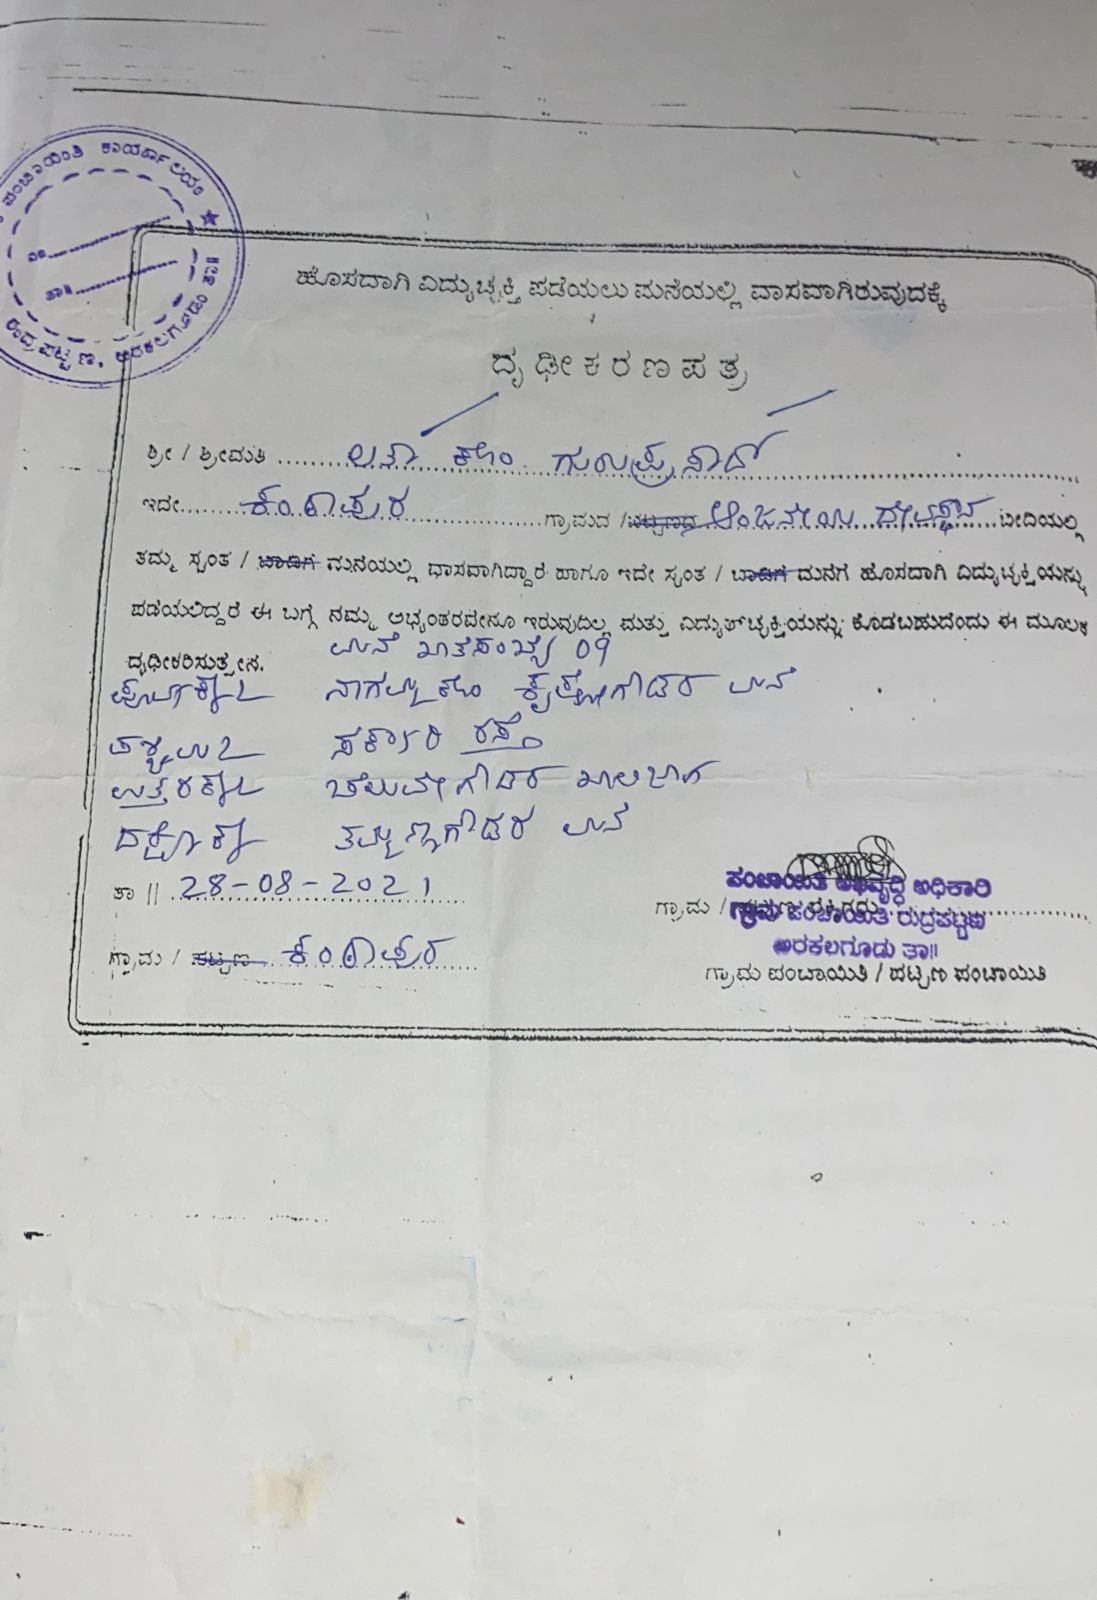 ಪಂಚಾಯಿತಿ ಕಾರ್ಯಾಲಯ
ನಂ
ತಾ॥
ರುದ್ರಪಟ್ಟಣ, ಅರಕಲಗೂಡು ತಾ॥
ಹೊಸದಾಗಿ ವಿದ್ಯುಚ್ಛಕ್ತಿ ಪಡೆಯಲು ಮನೆಯಲ್ಲಿ ವಾಸವಾಗಿರುವುದಕ್ಕೆ
ದೃಢೀಕರಣಪತ್ರ
ಶ್ರೀ / ಶ್ರೀಮತಿ ಲತಾ ಕೋಂ ಗುರುಪ್ರಸಾದ್
ಇದೇ ಕಂಠಾಪುರ ಗ್ರಾಮದ / ಪಟ್ಟಣದ ಆಂಜನೇಯ ದೇವಸ್ಥಾನ ಬೀದಿಯಲ್ಲಿ
ತಮ್ಮ ಸ್ವಂತ / ಬಾಡಿಗೆ ಮನೆಯಲ್ಲಿ ವಾಸವಾಗಿದ್ದಾರೆ ಹಾಗೂ ಇದೇ ಸ್ವಂತ / ಬಾಡಿಗೆ ಮನೆಗೆ ಹೊಸದಾಗಿ ವಿದ್ಯುಚ್ಛಕ್ತಿಯನ್ನು
ಪಡೆಯಲಿದ್ದರೆ ಈ ಬಗ್ಗೆ ನಮ್ಮ ಅಭ್ಯಂತರವೇನೂ ಇರುವುದಿಲ್ಲ ಮತ್ತು ವಿದ್ಯುತ್‌ಚ್ಛಕ್ತಿಯನ್ನು ಕೊಡಬಹುದೆಂದು ಈ ಮೂಲಕ
ದೃಢೀಕರಿಸುತ್ತೇನೆ. ಮನೆ ಖಾತೆಸಂಖ್ಯೆ 09
ಪೂರ್ವಕ್ಕೆ : ನಾಗಮ್ಮ ಕೋಂ ಕೃಷ್ಣೇಗೌಡರ ಮನೆ
ಪಶ್ಚಿಮ : ಸರ್ಕಾರಿ ರಸ್ತೆ
ಉತ್ತರಕ್ಕೆ : ಚೆಲುವೇಗೌಡರ ಖಾಲಿಜಾಗ
ದಕ್ಷಿಣಕ್ಕೆ ತಮ್ಮಣ್ಣಗೌಡರ ಮನೆ
ತಾ || 28-08-2021
ಪಂಚಾಯಿತಿ ಅಭಿವೃದ್ಧಿ ಅಧಿಕಾರಿ
ಗ್ರಾಮ /
ಗ್ರಾಮ ಪಂಚಾಯಿತಿ ರುದ್ರಪಟ್ಟಣ
ಅರಕಲಗೂಡು ತಾ॥
ಗ್ರಾಮ / ಪಟ್ಟಣ ಕಂಠಾಪುರ
ಗ್ರಾಮ ಪಂಚಾಯಿತಿ / ಪಟ್ಟಣ ಪಂಚಾಯಿತಿ